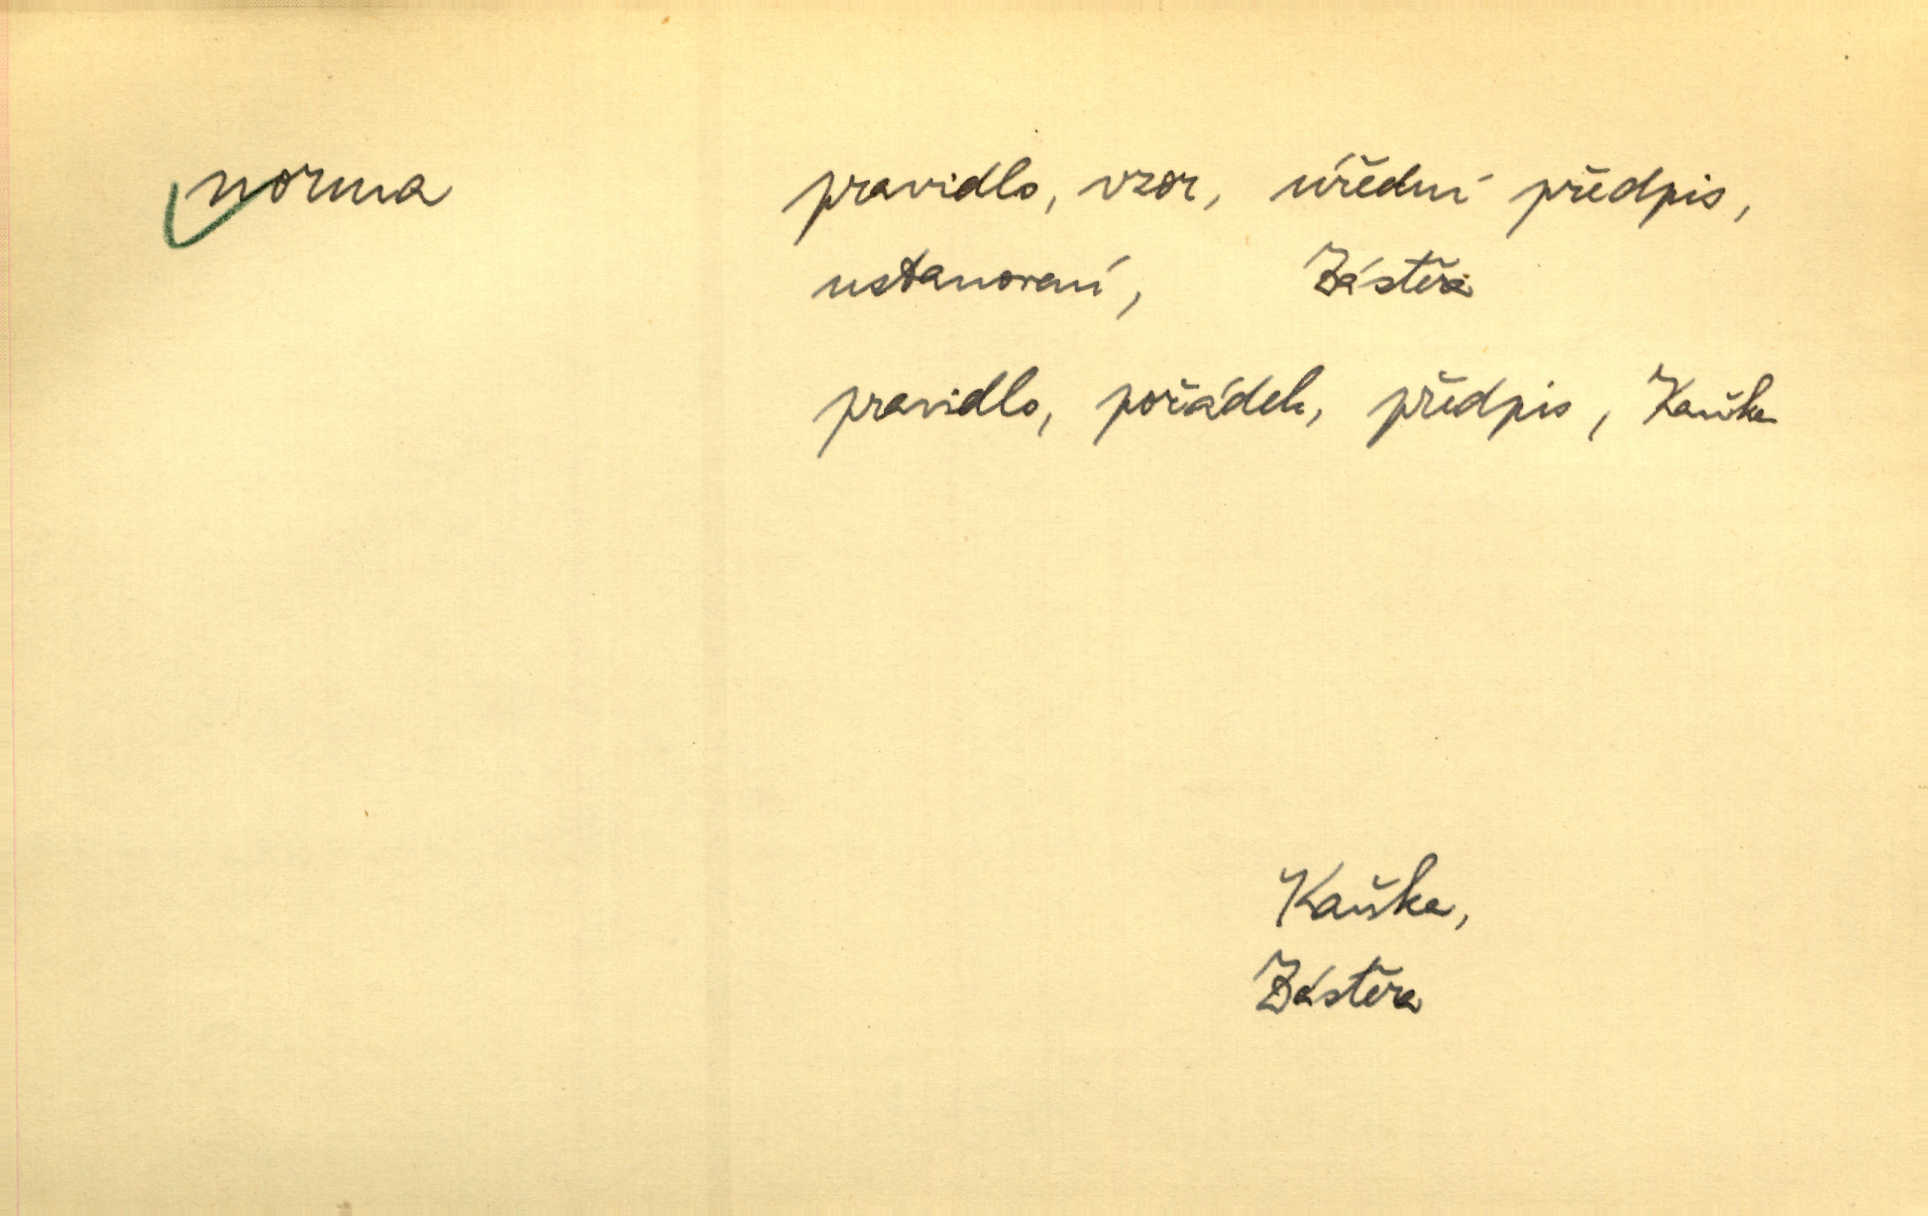 norma pravidlo, vzor, úřední předpis,
ustanovení, Zástěra
pravidlo, pořádek, předpis, Kaňka
Kaňka,
Zástěra